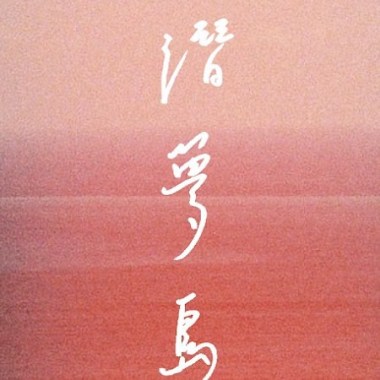 潛夢島